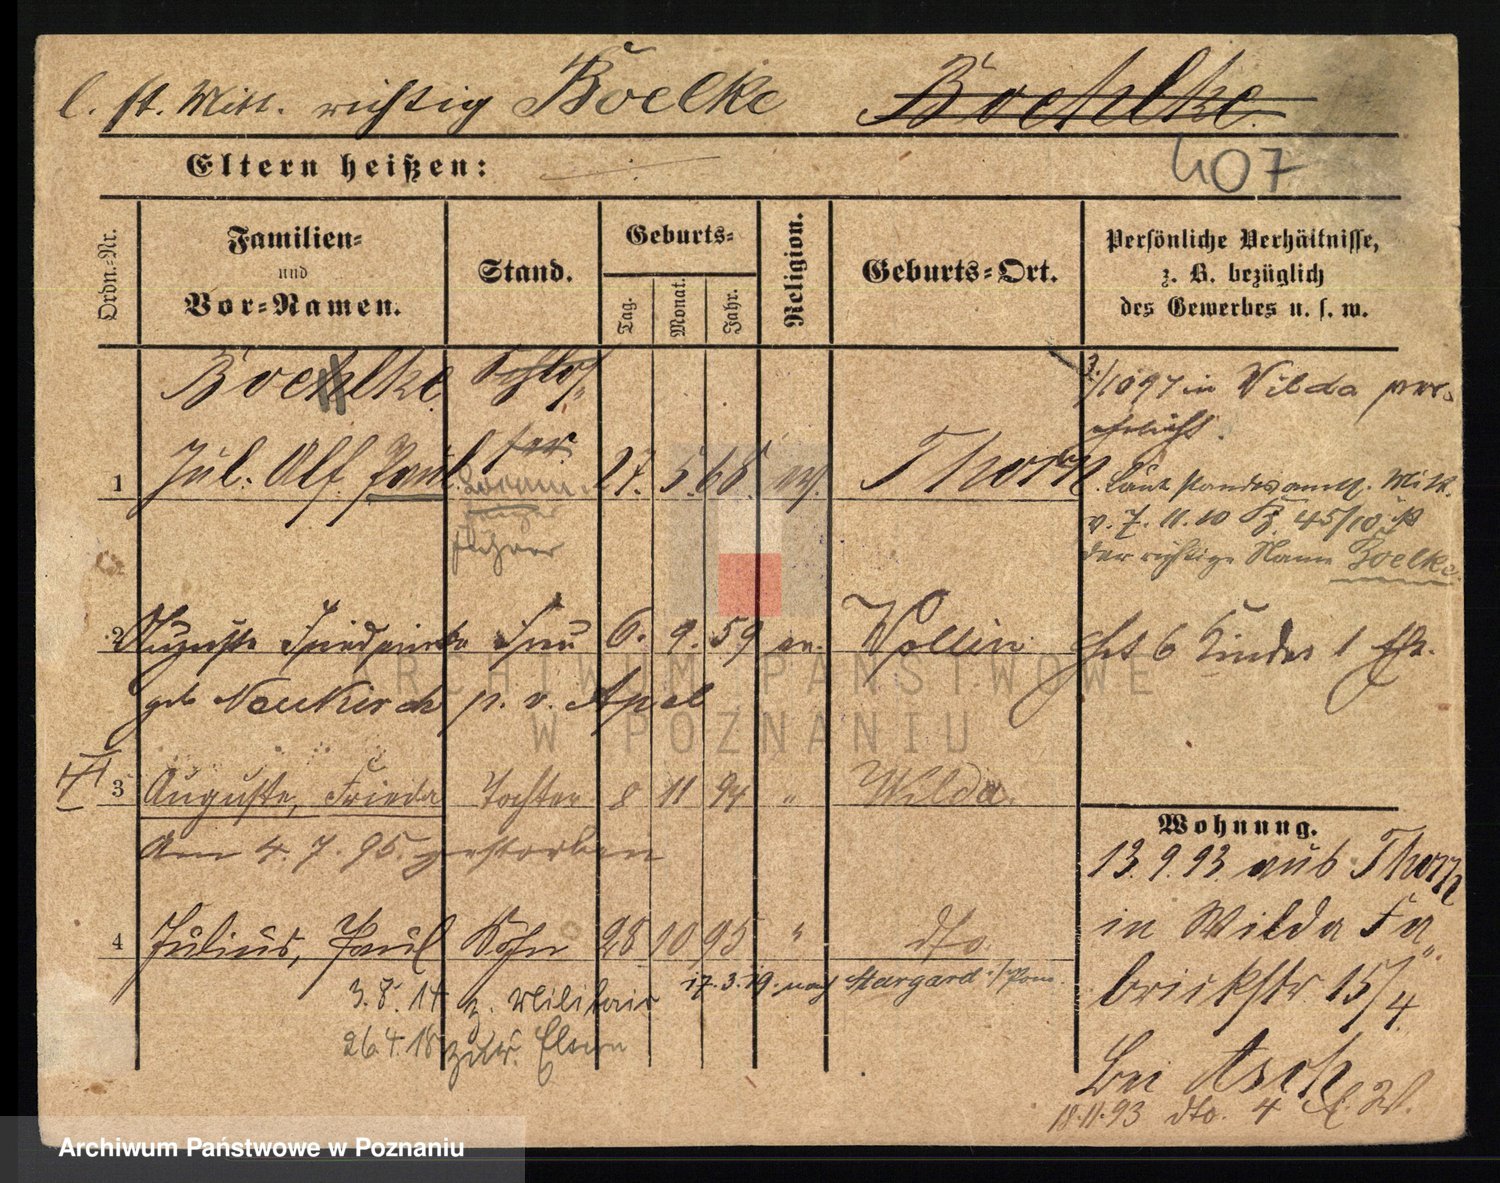 l. st. Mitt. richtig Boelke Boehlke.
Eltern heißen:
407
Ordn.-Nr.
Familien-
und
Vor-Namen.
Stand.
Geburts-
Tag.
Monat.
Jahr.
Religion.
Geburts-Ort.
Persönliche Verhältnisse,
z. B. bezüglich
des Gewerbes u. s. w.
Boehlke Schlos-
3/10 97 in Wilda ver-
ehelicht.
1 Jul. Alf. Paul ser 27. 5. 65 ev. Thorn
führer
Laut standesamtl. Mitt.
v. 7. 11. 10 45/10 ist
der richtige Name Boelke
2 Auguste Friederike Frau 6. 9. 59 ev. Wollin hat 6 Kinder 1 Ehe.
geb Neukirch p. v. Apel
ARCHIWUM PAŃSTWOWE
W POZNANIU
3 Auguste, Frieda Tochter 8 11 94 " Wilda.
Am 4. 7. 95. gestorben
Wohnung.
13. 9. 93 aus Thorn
in Wilda Fa-
brickstr 15/4
bei Asch
18.11.93 dto. 4
4 Julius, Paul Sohn 28 10 95 " dto.
3. 8. 14 z. Militair 17. 3. 19. nach Stargard i/Pom.
26.4.18 zur. Eltern
Archiwum Państwowe w Poznaniu